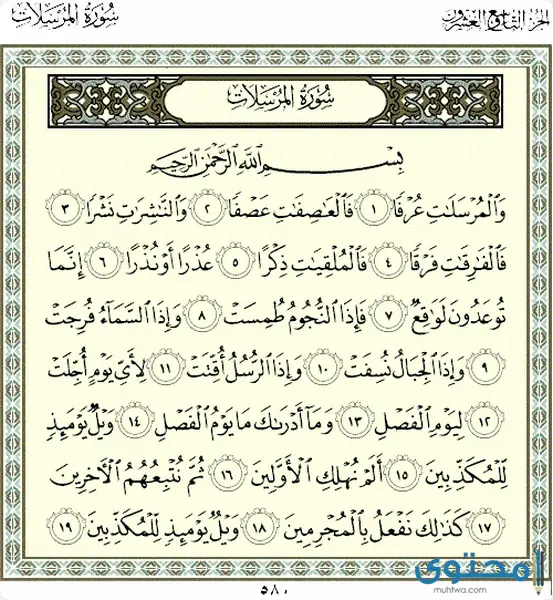 الجزء التاسع والعشرون
سُورَةُ المُرْسَلَات
سُورَةُ المُرْسَلَات
بِسْمِ اللَّهِ الرَّحْمَٰنِ الرَّحِيمِ
وَالْمُرْسَلَاتِ عُرْفًا ١ فَالْعَاصِفَاتِ عَصْفًا ٢ وَالنَّاشِرَاتِ نَشْرًا ٣
فَالْفَارِقَاتِ فَرْقًا ٤ فَالْمُلْقِيَاتِ ذِكْرًا ٥ عُذْرًا أَوْ نُذْرًا ٦ إِنَّمَا
تُوعَدُونَ لَوَاقِعٌ ٧ فَإِذَا النُّجُومُ طُمِسَتْ ٨ وَإِذَا السَّمَاءُ فُرِجَتْ
٩ وَإِذَا الْجِبَالُ نُسِفَتْ ١٠ وَإِذَا الرُّسُلُ أُقِّتَتْ ١١ لِأَيِّ يَوْمٍ أُجِّلَتْ
١٢ لِيَوْمِ الْفَصْلِ ١٣ وَمَا أَدْرَاكَ مَا يَوْمُ الْفَصْلِ ١٤ وَيْلٌ يَوْمَئِذٍ
لِّلْمُكَذِّبِينَ ١٥ أَلَمْ نُهْلِكِ الْأَوَّلِينَ ١٦ ثُمَّ نُتْبِعُهُمُ الْآخِرِينَ
١٧ كَذَٰلِكَ نَفْعَلُ بِالْمُجْرِمِينَ ١٨ وَيْلٌ يَوْمَئِذٍ لِّلْمُكَذِّبِينَ ١٩
٥٨٠
محتوى
muhtwa.com